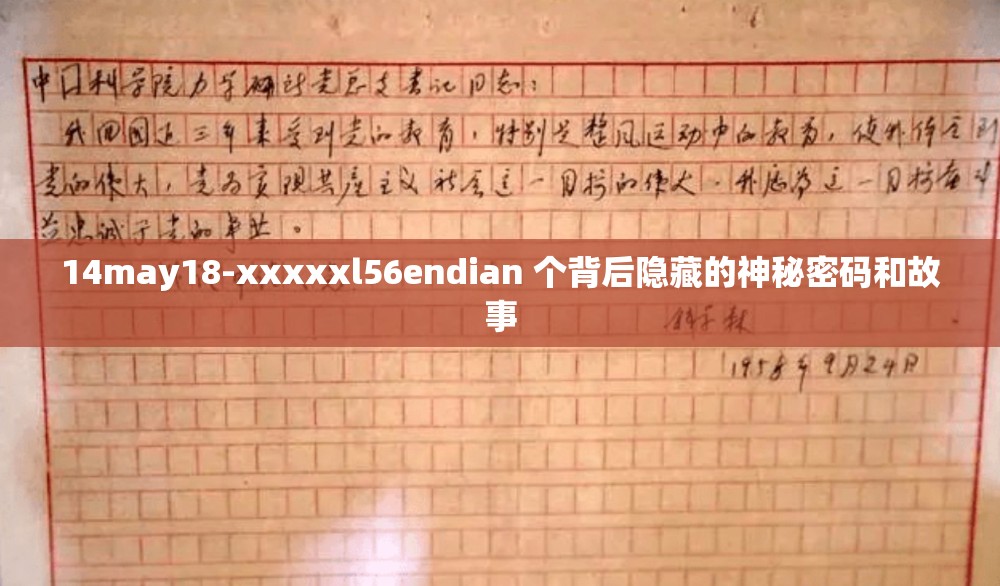 中国科学院力学研究所党总支书记同志：
我回国近三年来受到党的教育，特别是整风运动中的教育，使我体会到
党的伟大，党为实现共产主义社会这一目标的伟大。我愿为这一目标奋斗
并忠诚于党的事业。
14may18-xxxxxl56endian 个背后隐藏的神秘密码和故
事
钱学森
1958年9月24日